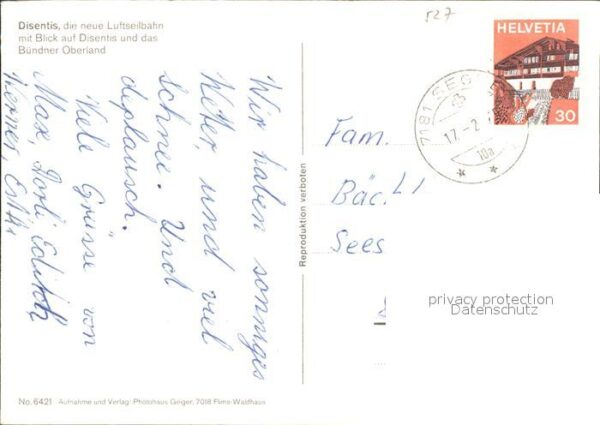 Disentis, die neue Luftseilbahn
mit Blick auf Disentis und das
Bündner Oberland
527
HELVETIA
30
7181 SED
17.-2.
10a
Wir haben sonniges
Wetter, und viel
Schnee. Und
deplausch.
Viele Grüsse von
Max, Dorli Edith
Werner, Esthi
Reproduktion verboten
Fam.
Bäc
Sees
privacy protection
Datenschutz
No. 6421 Aufnahme und Verlag: Photohaus Geiger, 7018 Flims-Waldhaus